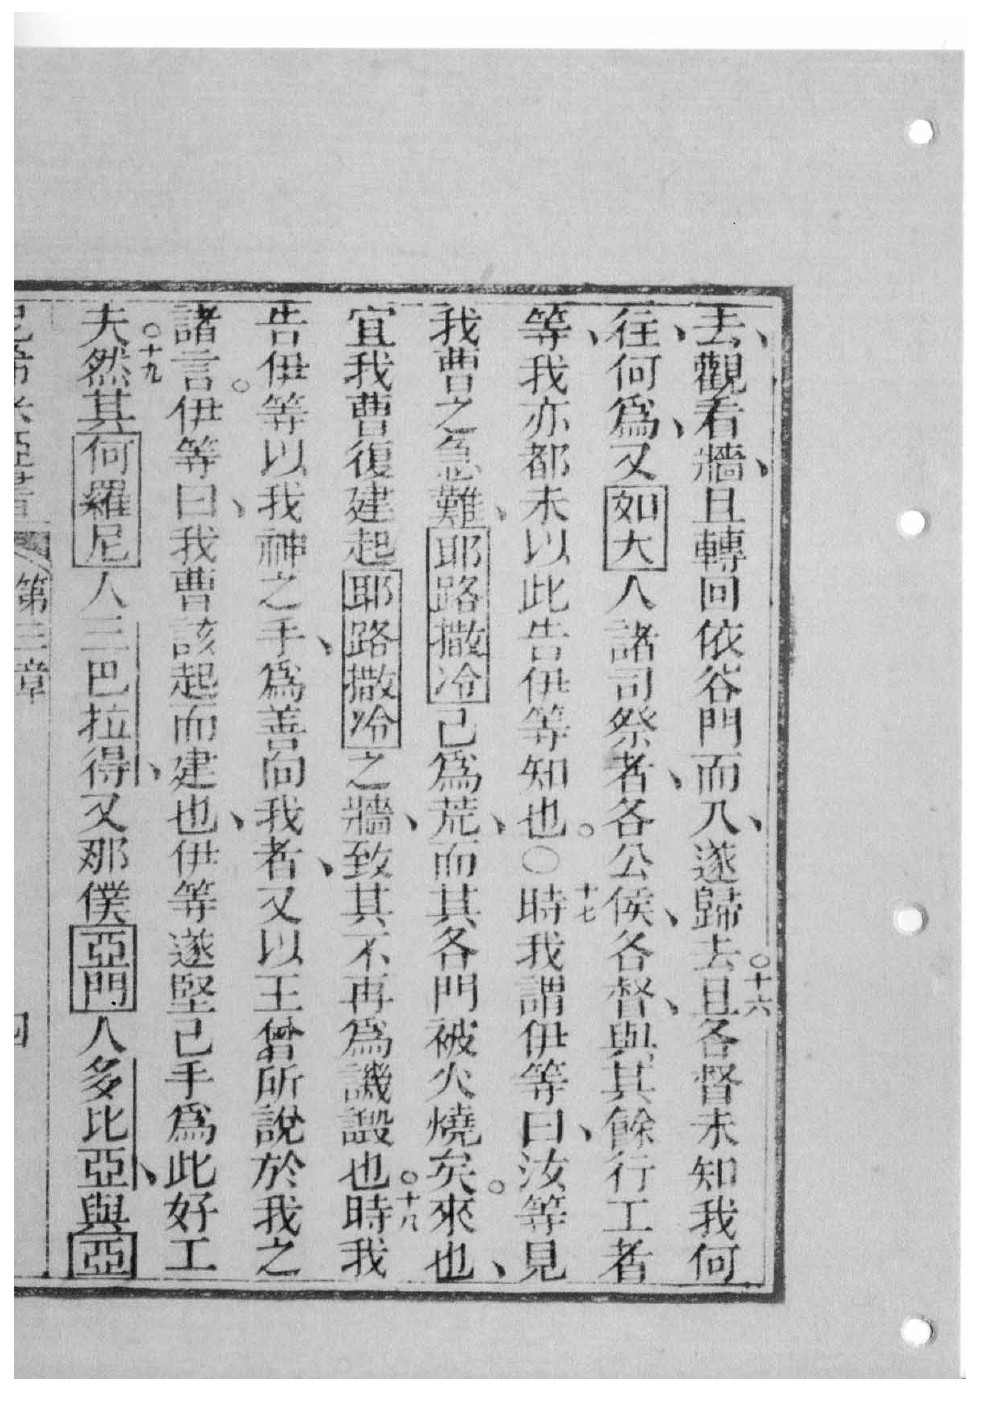 去、觀看牆、且轉回依谷門而入、遂歸去○十六且各督未知我何
往、何爲、又如大人諸司祭者、各公侯、各督、與其餘行工者
等、我亦都未以此告伊等知也。○十七時我謂伊等曰、汝等見
我曹之急難、耶路撒冷已爲荒、而其各門被火燒矣。來也、
宜我曹復建起耶路撒冷之牆、致其不再爲譏譭也。十八時我
告伊等以我神之手、爲善向我者、又以王曾所說於我之
諸言。伊等曰、我曹該起而建也、伊等遂堅己手爲此好工
○十九夫然其何羅尼人三巴拉得、又那僕亞門人多比亞、與亞
第二章
四